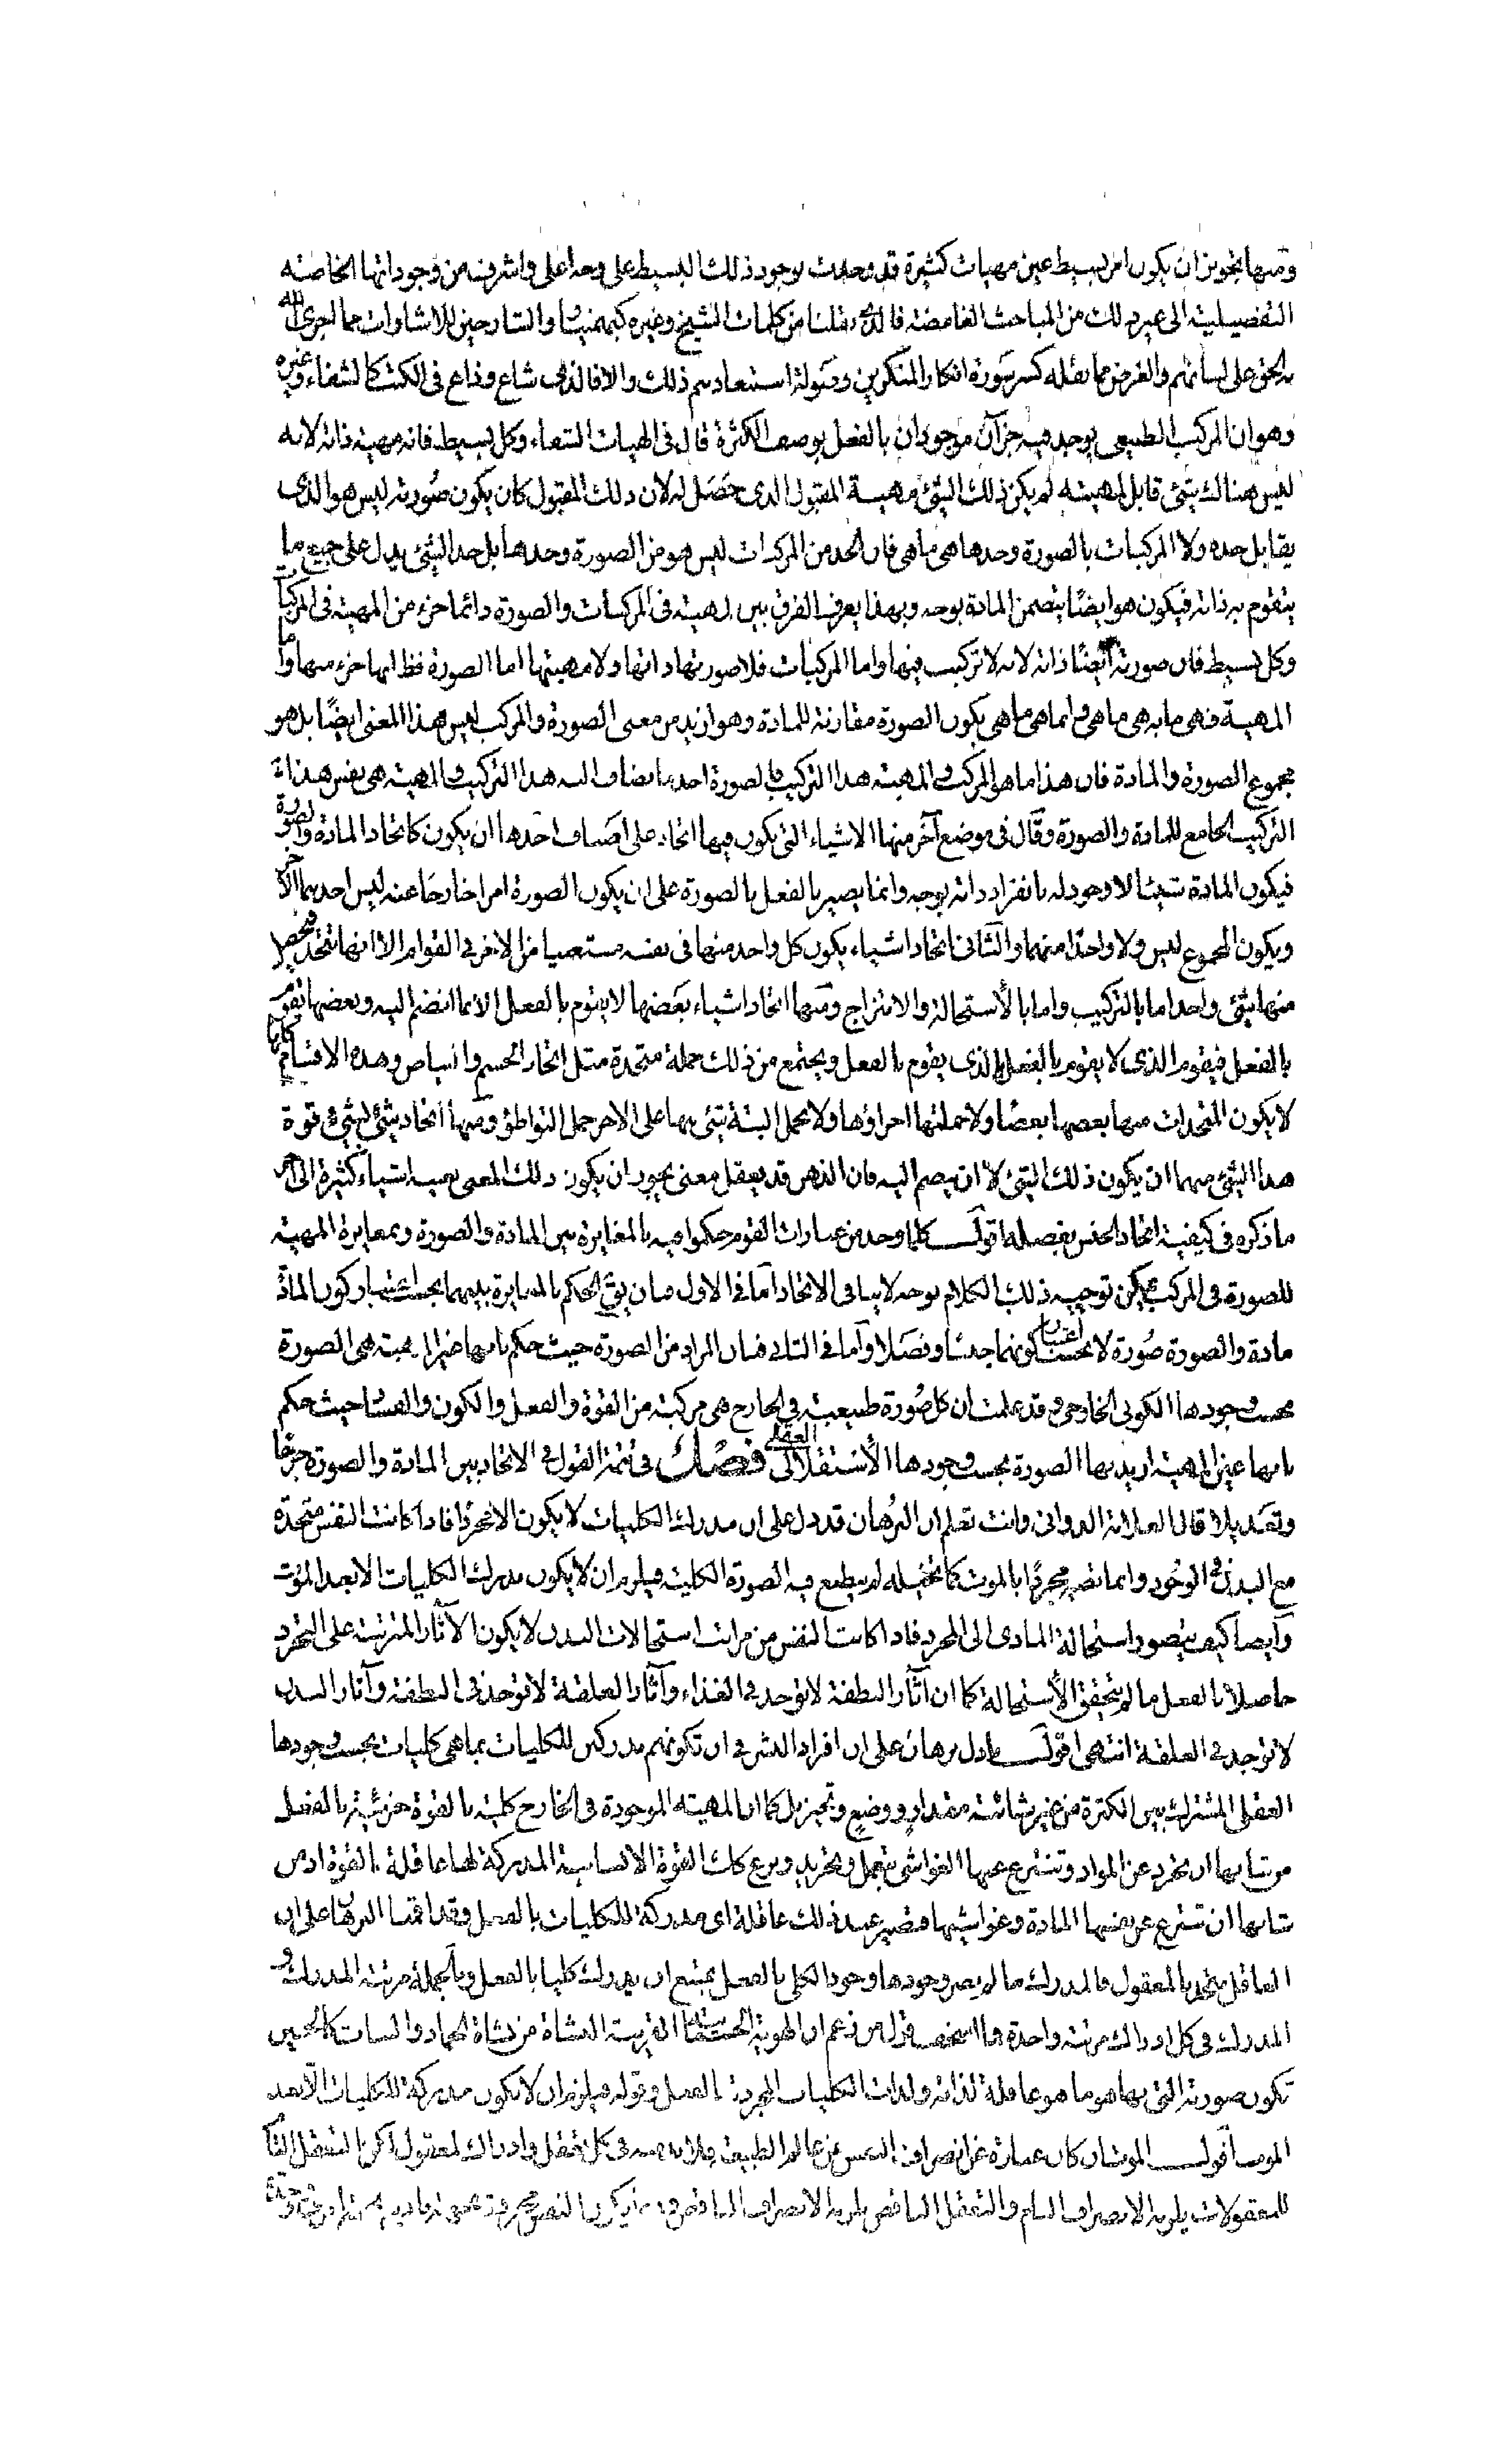 ومنها تجويز ان يكون امر بسيط عين مهيات كثيرة قد وجدت بوجود ذلك البسيط على وجه اعلى واشرف من وجوداتها الخاصة
التفصيلية الى غير ذلك من المباحث الغامضة فالذى نقلنا من كلمات الشيخ وغيره كبهمنيار والشارحين للاشارات مما اجرى الله
به الحق على لسانهم والغرض مما نقله كسر سورة انكار المنكرين وصولة استبعادهم ذلك والا فالذى شاع وذاع فى الكتب كالشفاء وغيره
وهو ان المركب الطبيعى يوجد فيه جزآن موجودان بالفعل بوصف الكثرة قال فى الهيات الشفاء وكل بسيط فانه مهيته ذاته لانه
ليس هناك شئ قابل لمهيته لم يكن ذلك الشئ مهية المقبول الذى حصل له لان ذلك المقبول كان يكون صورته ليس هو الذى
يقابل حده ولا المركبات بالصورة وحدها هى ما هى فان الحد من المركبات ليس هو من الصورة وحدها بل حد الشئ يدل على جميع ما
يتقوم به ذاته فيكون هو ايضا يتضمن المادة بوجه وبهذا يعرف الفرق بين المهية فى المركبات والصورة دائما جزء من المهية فى المركبات
وكل بسيط فان صورته ايضا ذاته لانه لا تركيب فيها واما المركبات فلا صورتها ذاتها ولا مهيتها اما الصورة فظ انها جزء منها واما
المهية فهى ما به هى ما هى وانما هى ما هى بكون الصورة مقارنة للمادة وهو ازيد من معنى الصورة والمركب ليس هذا المعنى ايضا بل هو
مجموع الصورة والمادة فان هذا ما هو المركب والمهية هذا التركيب فالصورة احد ما يضاف اليه هذا التركيب والمهية هى نفس هذا
التركيب الجامع للمادة والصورة وقال فى موضع آخر منها الاشياء التى يكون فيها اتحاد على اصناف احدها ان يكون كاتحاد المادة والصورة
فيكون المادة شيئا لا وجود له بانفراد ذاته بوجه وانما يصير بالفعل بالصورة على ان يكون الصورة امرا خارجا عنه ليس احدهما الآخر
ويكون المجموع ليس ولا واحدا منهما والثانى اتحاد اشياء يكون كل واحد منها فى نفسه مستغنيا من الاخر فى القوام الا انها تتحد فيحصل
منها شئ واحد اما بالتركيب واما بالاستحالة والامتزاج ومنها اتحاد اشياء بعضها لا يقوم بالفعل الا بما انضم اليه وبعضها يقوم
بالفعل فيقوم الذى لا يقوم بالفعل بالذى يقوم بالفعل ويجتمع من ذلك جملة متحدة مثل اتحاد الجسم والبياض وهذه الاقسام كلها
لا يكون المتحدات منها بعضها بعضا ولا جملتها اجزاؤها ولا يحمل البتة شئ منها على الاخر حمل التواطؤ ومنها اتحاد شئ بشئ قوة
هذا الشئ منهما ان يكون ذلك الشئ لا ان يضم اليه فان الذهن قد يعقل معنى يجوز ان يكون ذلك المعنى نفسه اشياء كثيرة الى آخر
ما ذكره فى كيفية اتحاد الجنس بفصله اقول كلما وجد من عبارات القوم حكموا فيه بالمغايرة بين المادة والصورة وبمغايرة المهية
للصورة فى المركب يمكن توجيه ذلك الكلام بوجه لا ينافى الاتحاد اما فى الاول فبان يق الحكم بالمغايرة بينهما بحسب اعتبار كون المادة
مادة والصورة صورة لا بحسب اعتبار كونهما جنسا وفصلا واما فى الثانى فبان المراد من الصورة حيث حكم بانها غير المهية هى الصورة
بحسب وجودها الكونى الخارجى وقد علمت ان كل صورة طبيعية فى الخارج هى مركبة من القوة والفعل والكون والفساد حيث حكم
بانها عين المهية اريد بها الصورة بحسب وجودها الاستقلالى العقلى فصل فى تتمة القول فى الاتحاد بين المادة والصورة جرحا
وتعديلا قال العلامة الدوانى وانت تعلم ان البرهان قد دل على ان مدرك الكليات لا يكون الا مجردا فاذا كانت النفس متحدة
مع البدن فى الوجود وانما تصير مجردا بالموت كما تخيله لم ينطبع فيه الصورة الكلية فيلزم ان لا يكون مدرك الكليات الا بعد الموت
وايضا كيف يتصور استحالة المادى الى المجرد فاذا كانت النفس من مراتب استحالات البدن لا يكون الآثار المترتبة على التجرد
حاصلا بالفعل ما لم يتحقق الاستحالة كما ان آثار النطفة لا توجد فى الغذاء وآثار العلقة لا توجد فى النطفة وآثار البدن
لا توجد فى العلقة انتهى اقول ما دل برهان على ان افراد البشر فى ان تكونهم مدركين للكليات بما هى كليات بحسب وجودها
العقلى المشترك بين الكثرة من غير شائبة مقدار ووضع وتحيز بل كما ان المهية الموجودة فى الخارج كلية بالقوة جزئية بالفعل
من شانها ان يجرد عن المواد وتنتزع عنها الغواشى بتعمل وتجريد ونزع كذلك القوة الانسانية المدركة لها عاقلة بالقوة اذ من
شانها ان تنتزع عن نفسها المادة وغواشيها فتصير عند ذلك عاقلة اى مدركة للكليات بالفعل وقد اقمنا البرهان على ان
العاقل يتحد بالمعقول فالمدرك ما لم يصر وجودها وجود الكلى بالفعل يمتنع ان يدرك كليا بالفعل وبالجملة مرتبة المدرك و
المدرك فى كل ادراك مرتبة واحدة فما اسخف قول من زعم ان الهوية الحسمانية القريبة النشاة من نشاة الجماد والنبات كالجنين
تكون صورته التى بها هو ما هو عاقلة لذاته ولذات الكليات المجردة بالفعل وقوله فيلزم ان لا يكون مدركة للكليات الا بعد
الموت اقول الموت ان كان عبارة عن انصراف النفس عن عالم الطبيعة فلا بد منه فى كل تعقل وادراك لمعقول لكن التعقل التام
للمعقولات يلزمه الانصراف التام والتعقل الناقص يلزمه الانصراف الناقص